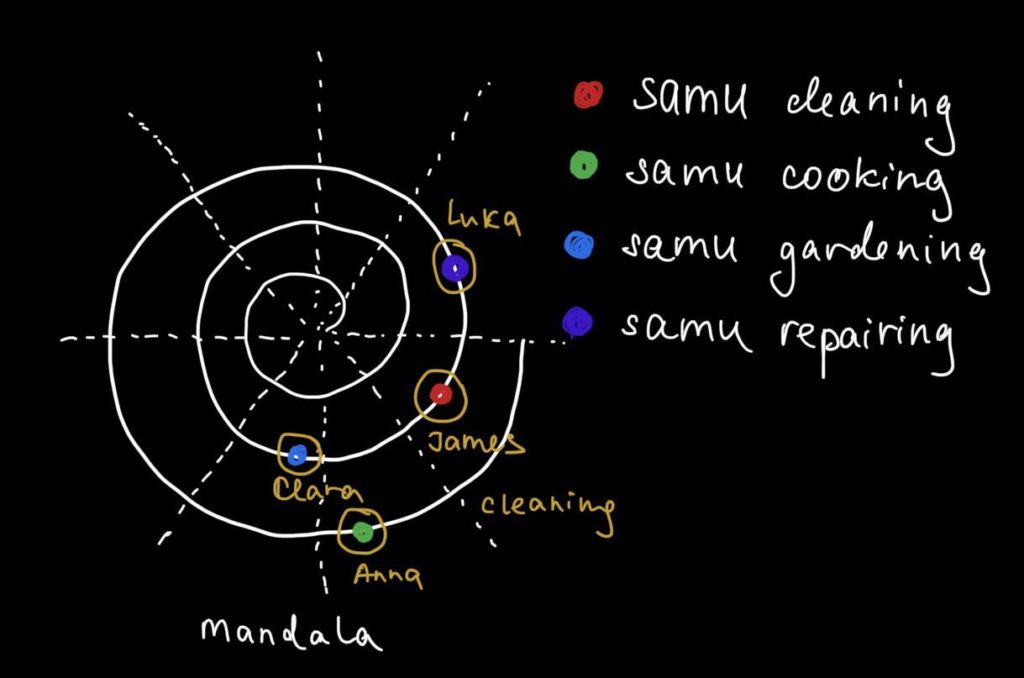 samu cleaning
samu cooking
samu gardening
samu repairing
Luka
James
Clara
cleaning
Anna
mandala